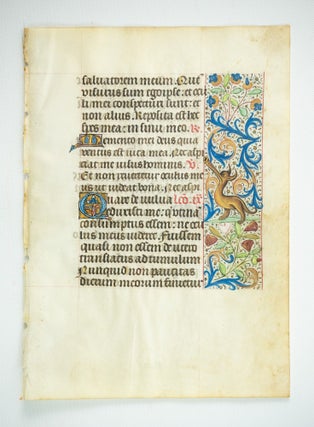 salvatorem meum. Que
visurus sum ego ipse: et oculi
mei conspecturi sunt: et
non alius. Reposita est hec
spes mea: in sinu meo. R.
Memento mei deus quia
ventus est vita mea. Nec aspi
me visus hominis. V.
Et non revertetur oculus meus
ut videat bona. Nec aspi
Quare de vulva lco. ix
eduxisti me: qui utinam
consumptus essem: ne ocu
lus me videret. Fuissem
quasi non essem: de utero
translatus ad tumulum.
Nunquid non paucitas
dierum meorum finietur